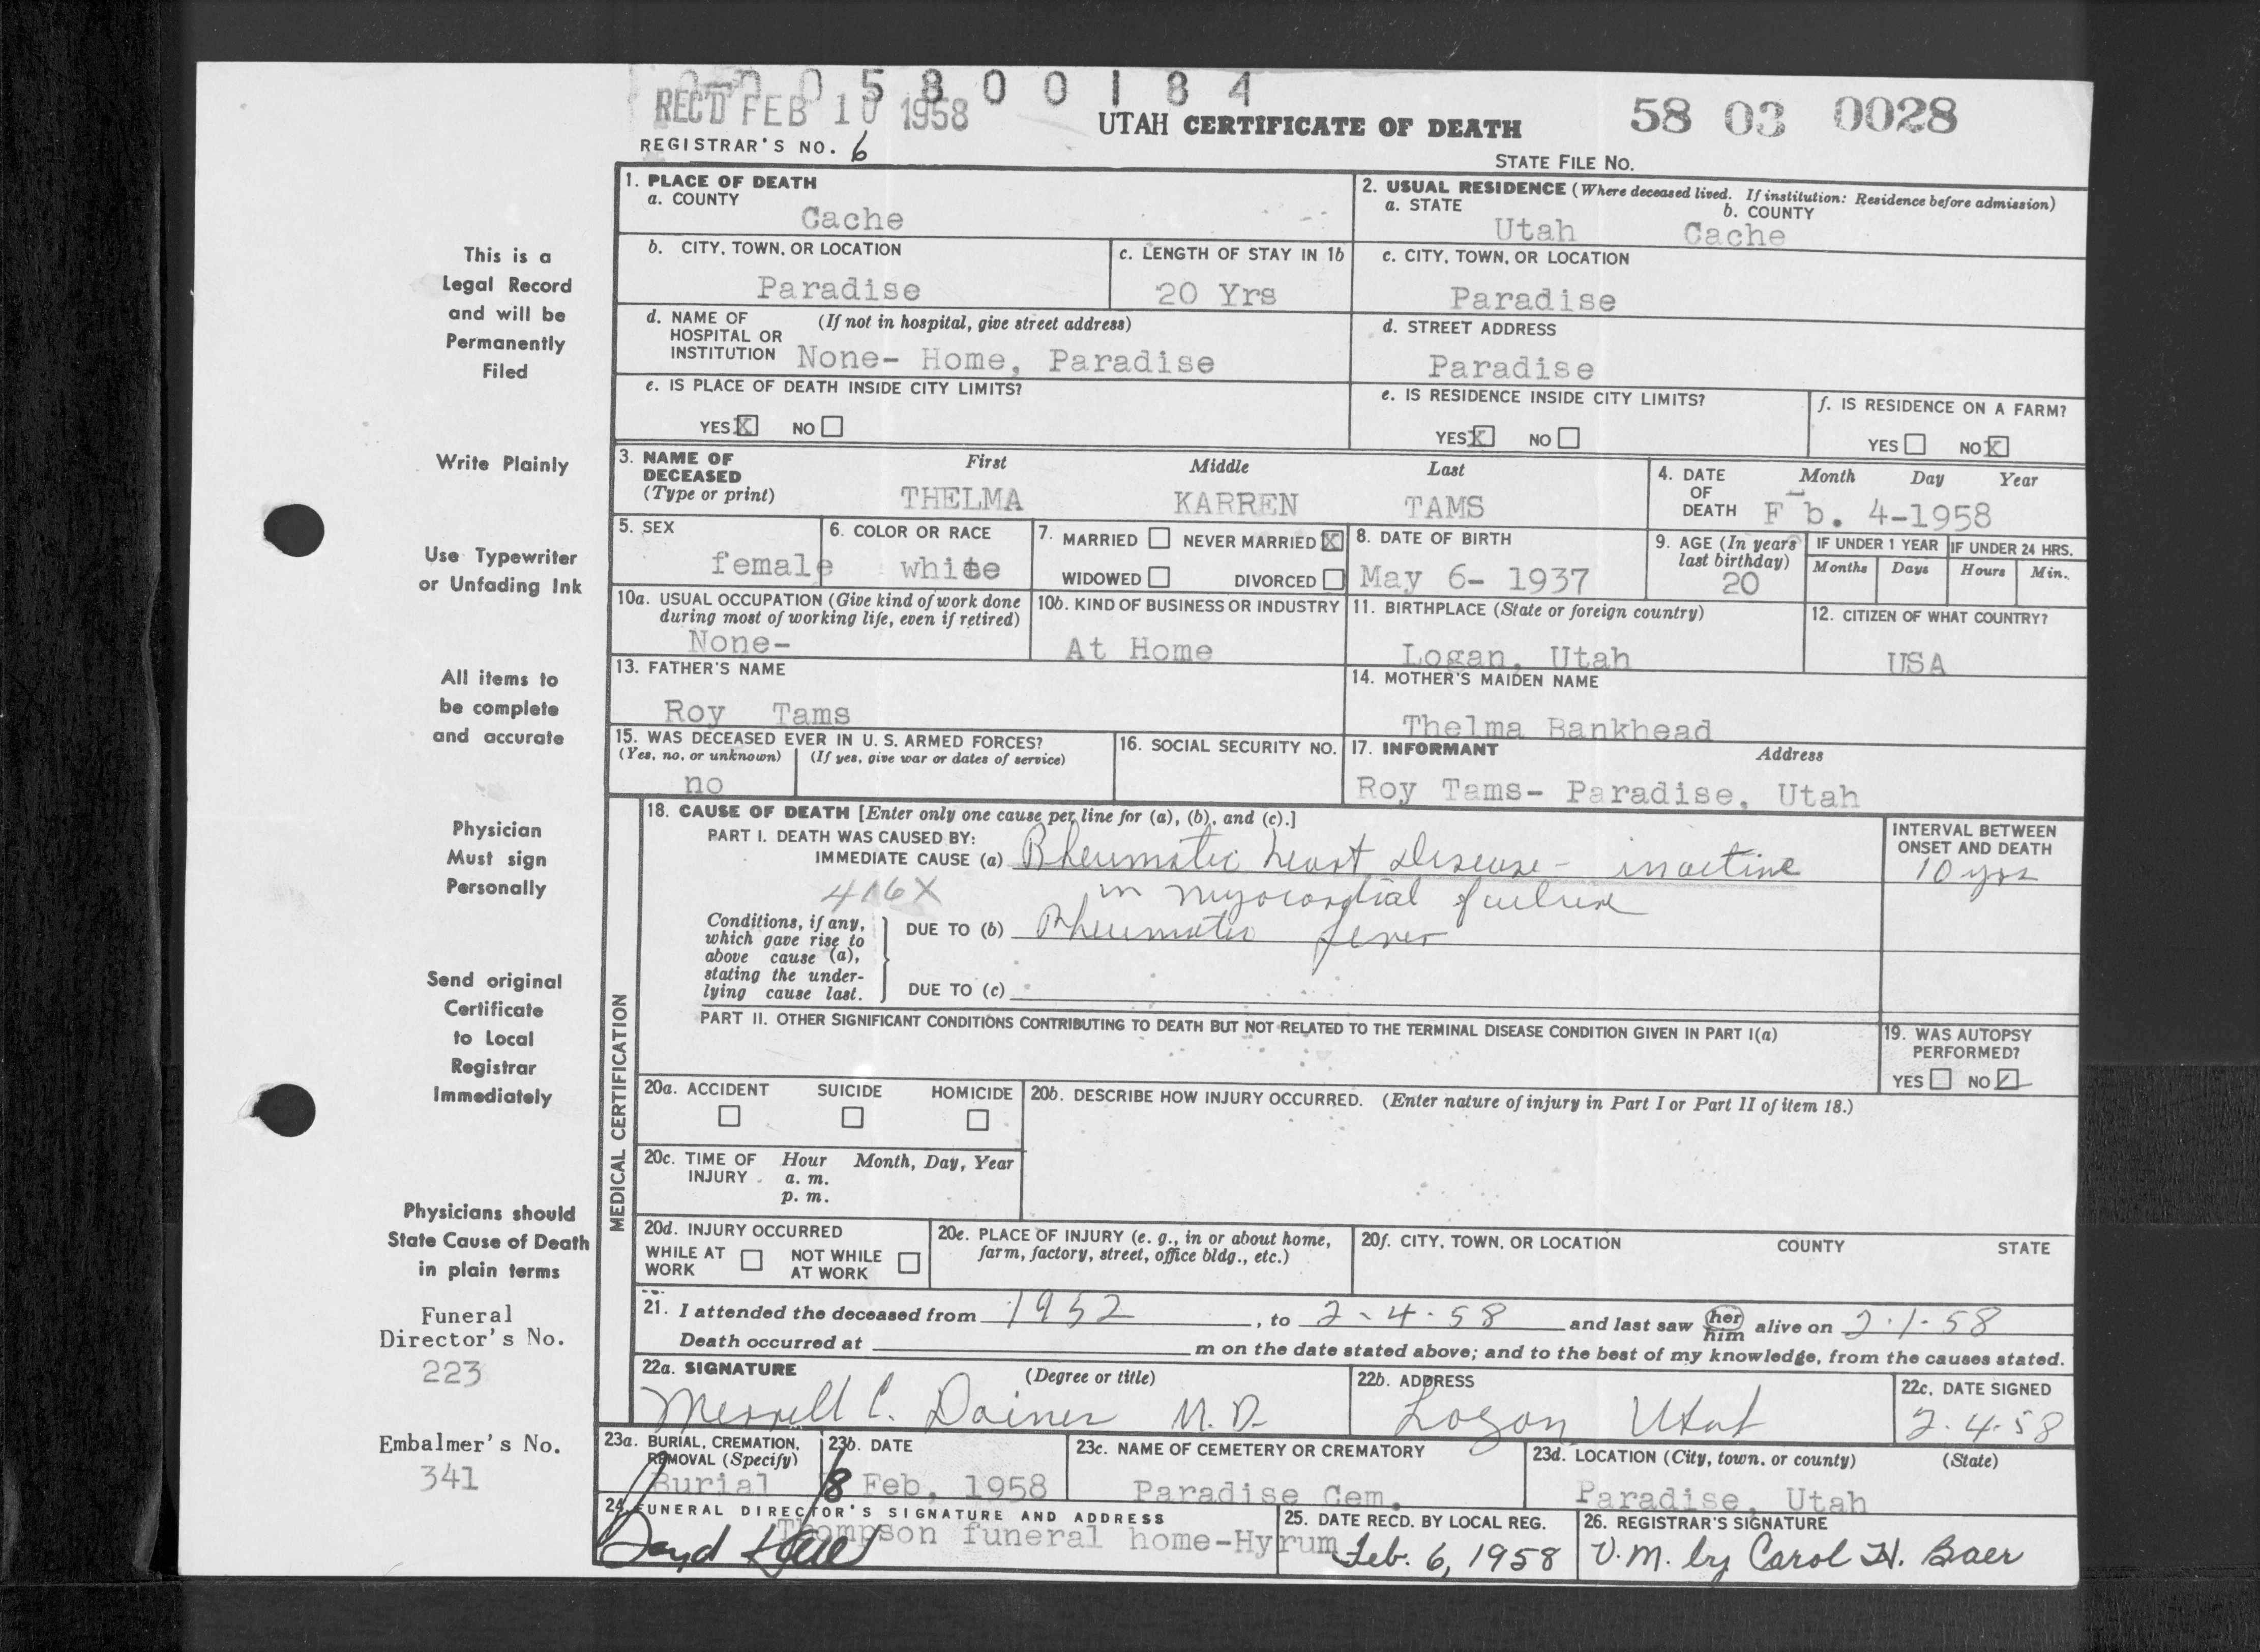 5 8 0 0 1 8 4
REC'D FEB 10 1958
UTAH CERTIFICATE OF DEATH
58 03 0028
REGISTRAR'S NO. 6
STATE FILE NO.
This is a
Legal Record
and will be
Permanently
Filed
Write Plainly
Use Typewriter
or Unfading Ink
All items to
be complete
and accurate
Physician
Must sign
Personally
Send original
Certificate
to Local
Registrar
Immediately
Physicians should
State Cause of Death
in plain terms
Funeral
Director's No.
223
Embalmer's No.
341
1. PLACE OF DEATH
a. COUNTY
Cache
2. USUAL RESIDENCE (Where deceased lived. If institution: Residence before admission)
a. STATE
b. COUNTY
Utah Cache
b. CITY, TOWN, OR LOCATION
Paradise
c. LENGTH OF STAY IN 1b
20 Yrs
c. CITY, TOWN, OR LOCATION
Paradise
d. NAME OF (If not in hospital, give street address)
HOSPITAL OR
INSTITUTION None- Home, Paradise
d. STREET ADDRESS
Paradise
e. IS PLACE OF DEATH INSIDE CITY LIMITS?
YES X NO
e. IS RESIDENCE INSIDE CITY LIMITS?
YES X NO
f. IS RESIDENCE ON A FARM?
YES NO X
3. NAME OF First Middle Last
DECEASED
(Type or print) THELMA KARREN TAMS
4. DATE Month Day Year
OF
DEATH F b. 4-1958
5. SEX
female
6. COLOR OR RACE
white
7. MARRIED NEVER MARRIED X
WIDOWED DIVORCED
8. DATE OF BIRTH
May 6- 1937
9. AGE (In years
last birthday)
20
IF UNDER 1 YEAR
Months Days
IF UNDER 24 HRS.
Hours Min.
10a. USUAL OCCUPATION (Give kind of work done
during most of working life, even if retired)
None-
10b. KIND OF BUSINESS OR INDUSTRY
At Home
11. BIRTHPLACE (State or foreign country)
Logan, Utah
12. CITIZEN OF WHAT COUNTRY?
USA
13. FATHER'S NAME
Roy Tams
14. MOTHER'S MAIDEN NAME
Thelma Bankhead
15. WAS DECEASED EVER IN U. S. ARMED FORCES?
(Yes, no, or unknown) (If yes, give war or dates of service)
no
16. SOCIAL SECURITY NO.
17. INFORMANT Address
Roy Tams- Paradise, Utah
MEDICAL CERTIFICATION
18. CAUSE OF DEATH [Enter only one cause per line for (a), (b), and (c).]
PART I. DEATH WAS CAUSED BY:
IMMEDIATE CAUSE (a) Rheumatic heart disease - inactive
416X in myocardial failure
INTERVAL BETWEEN
ONSET AND DEATH
10 yrs
Conditions, if any,
which gave rise to
above cause (a),
stating the under-
lying cause last.
DUE TO (b) Rheumatic fever
DUE TO (c)
PART II. OTHER SIGNIFICANT CONDITIONS CONTRIBUTING TO DEATH BUT NOT RELATED TO THE TERMINAL DISEASE CONDITION GIVEN IN PART I(a)
19. WAS AUTOPSY
PERFORMED?
YES NO ✓
20a. ACCIDENT SUICIDE HOMICIDE
20b. DESCRIBE HOW INJURY OCCURRED. (Enter nature of injury in Part I or Part II of item 18.)
20c. TIME OF Hour Month, Day, Year
INJURY a. m.
p. m.
20d. INJURY OCCURRED
WHILE AT NOT WHILE
WORK AT WORK
20e. PLACE OF INJURY (e. g., in or about home,
farm, factory, street, office bldg., etc.)
20f. CITY, TOWN, OR LOCATION COUNTY STATE
21. I attended the deceased from 1952, to 2-4-58 and last saw her him alive on 2-1-58
Death occurred at m on the date stated above; and to the best of my knowledge, from the causes stated.
22a. SIGNATURE (Degree or title)
Merrell C. Daines M.D.
22b. ADDRESS
Logan Utah
22c. DATE SIGNED
2-4-58
23a. BURIAL, CREMATION,
REMOVAL (Specify)
Burial
23b. DATE
8 Feb, 1958
23c. NAME OF CEMETERY OR CREMATORY
Paradise Cem.
23d. LOCATION (City, town, or county) (State)
Paradise, Utah
24. FUNERAL DIRECTOR'S SIGNATURE AND ADDRESS
Thompson funeral home-Hyrum
25. DATE RECD. BY LOCAL REG.
Feb. 6, 1958
26. REGISTRAR'S SIGNATURE
V.M. by Carol H. Baer